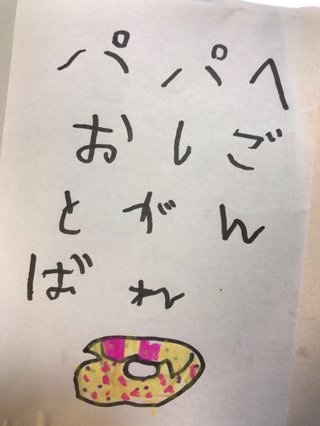 パパへ
おしご
とがん
ばれ